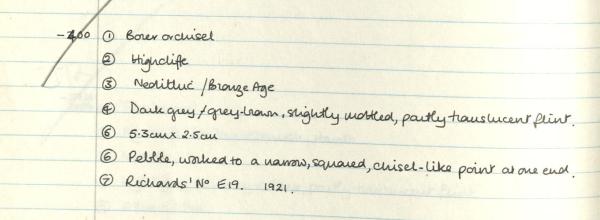 -400 ① Borer or chisel
② Highcliffe
③ Neolithic / Bronze Age
④ Dark grey / grey-brown, slightly mottled, partly translucent flint.
⑤ 5.3cm x 2.5cm
⑥ Pebble, worked to a narrow, squared, chisel-like point at one end.
⑦ Richards' No E19. 1921.